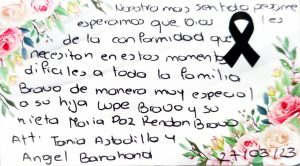 Nuestro mas sentido pesame
esperamos que Dios les
de la conformidad que
necesitan en estos momentos
dificiles a toda la familia
Bravo de manera muy especial
a su hija Lupe Bravo y su
nieta Maria Paz Rendon Bravo
Att: Tania Astudillo y
Angel Barahona 27/03/23